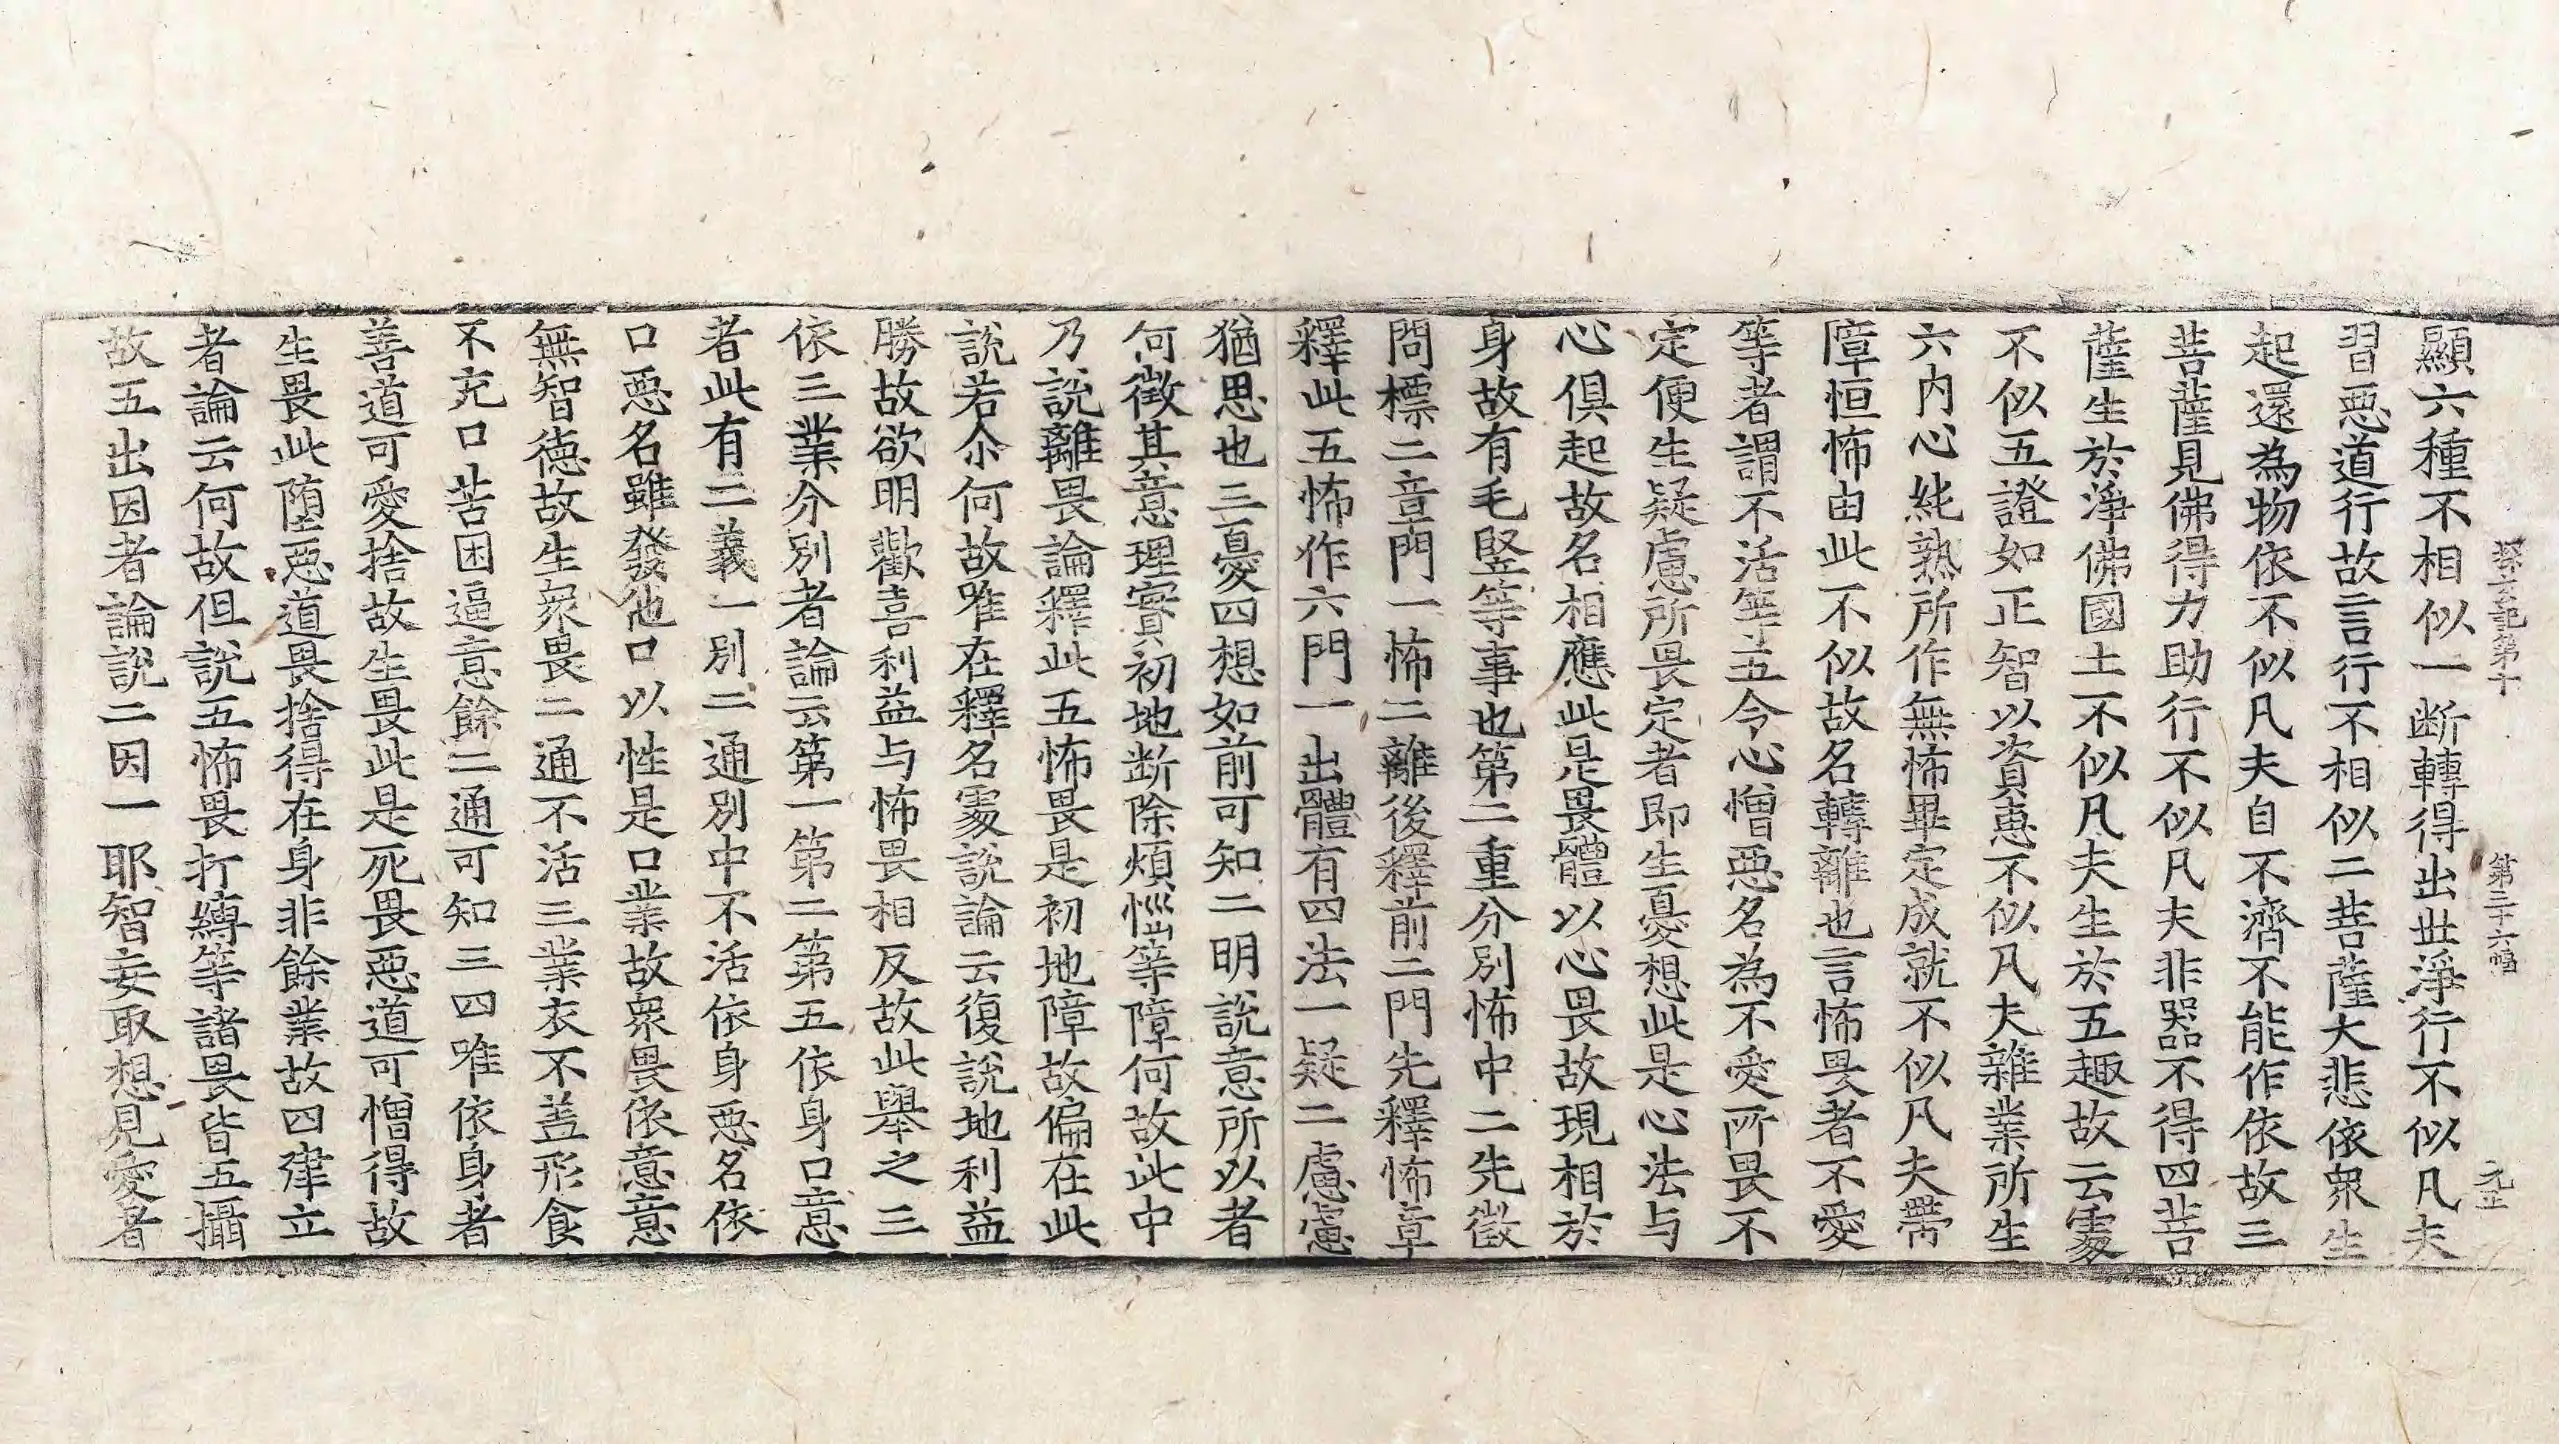 探玄記第十 第三十六幅 元正
顯六種不相似一断轉得出世淨行不似凡夫
習惡道行故言行不相似二菩薩大悲依衆生
起還為物依不似凡夫自不濟不能作依故三
菩薩見佛得力助行不似凡夫非器不得四菩
薩生於淨佛國土不似凡夫生於五趣故云處
不似五證如正智以資惠不似凡夫雜業所生
六内心純熟所作無怖畢定成就不似凡夫帶
障恒怖由此不似故名轉離也言怖畏者不愛
等者謂不活等五令心憎惡名為不愛所畏不
定便生疑慮所畏定者即生憂想此是心法与
心俱起故名相應此是畏體以心畏故現相於
身故有毛竪等事也第二重分別怖中二先徵
問標二章門一怖二離後釋前二門先釋怖章
釋此五怖作六門一出體有四法一疑二慮慮
猶思也三憂四想如前可知二明說意所以者
何徵其意理實初地断除煩惱等障何故此中
乃說離畏論釋此五怖畏是初地障故偏在此
說若尒何故唯在釋名處說論云復說地利益
勝故欲明歡喜利益与怖畏相反故此舉之三
依三業分別者論云第一第二第五依身口意
者此有二義一別二通別中不活依身惡名依
口惡名雖發他口以性是口業故衆畏依意意
無智德故生衆畏二通不活三業衣不盖形食
不充口苦困逼意餘二通可知三四唯依身者
善道可愛捨故生畏此是死畏惡道可憎得故
生畏此堕惡道畏捨得在身非餘業故四建立
者論云何故但說五怖畏打縛等諸畏皆五攝
故五出因者論說二因一耶智妄取想見愛著